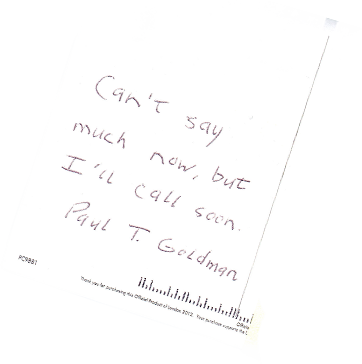 Can't say
much now, but
I'll call soon.
Paul T. Goldman
PC9881
Thank you for purchasing this Official Product of London 2012. Your purchase supports the